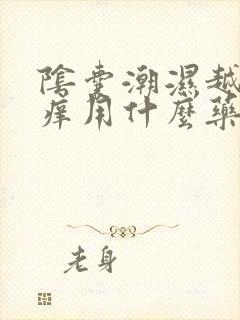 陰囊潮濕越
痒用什麼藥
老身